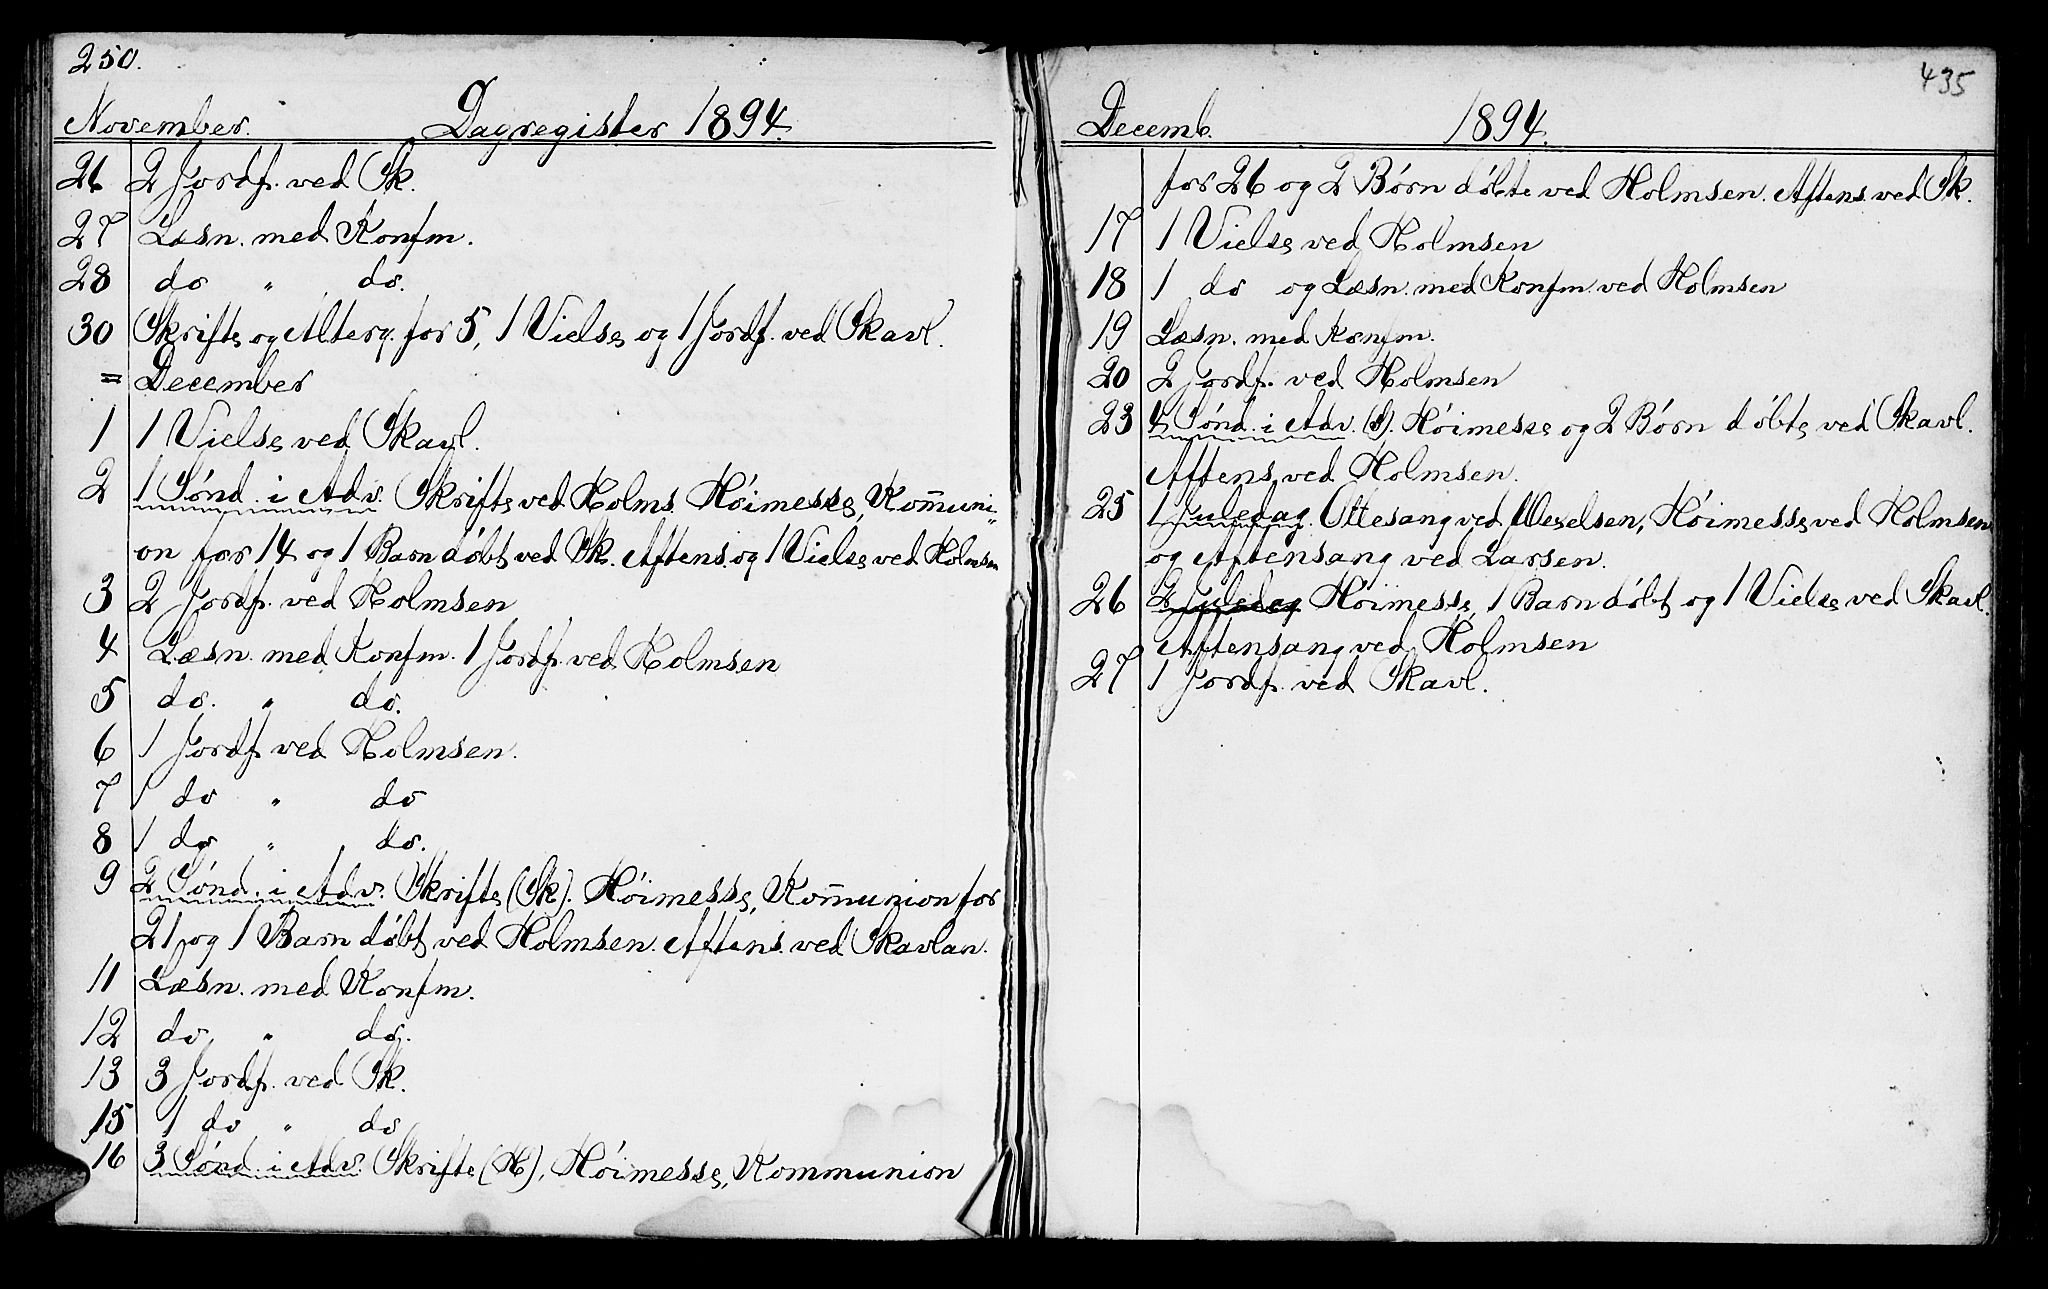 250.
November. Dagregister 1894.
26 2 Jordf. ved Sk.
27 Læsn. med Konfm.
28 do " do.
30 Skrifte og Alterg. for 5, 1 Vielse og 1 Jordf. ved Skavl.
= December
1 1 Vielse ved Skavl.
2 1 Sønd. i Adv. Skrifte ved Holms. Höimesse, Kom̅uni-
on for 14 og 1 Barn døbt ved Sk. Aftens. og 1 Vielse ved Holmsen
3 2 Jordf. ved Holmsen
4 Læsn. med Konfm. 1 Jordf. ved Holmsen
5 do. " do.
6 1 Jordf. ved Holmsen.
7 1 do " do
8 1 do " do.
9 2 Sønd. i Adv. Skrifte (Sk). Höimesse, Kom̅union for
21 og 1 Barn døbt ved Holmsen. Aftens. ved Skavlan.
11 Læsn. med Konfm.
12 do " do.
13 3 Jordf. ved Sk.
15 1 do " do
16 3 Sønd. i Adv. Skrifte (H), Höimesse, Kommunion
435
Decemb. 1894.
for 26 og 2 Børn døbte ved Holmsen. Aftens. ved Sk.
17 1 Vielse ved Holmsen
18 1 do og Læsn. med Konfm. ved Holmsen
19 Læsn. med Konfm.
20 2 Jordf. ved Holmsen
23 4 Sønd. i Adv. (S). Höimesse og 2 Børn døbte ved Skavl.
Aftens ved Holmsen.
25 1 Juledag. Ottesang ved Weselsen, Höimesse ved Holmsen
og Aftensang ved Larsen.
26 2 Juledag Höimesse, 1 Barn døbt og 1 Vielse ved Skavl.
Aftensang ved Holmsen
27 1 Jordf. ved Skavl.